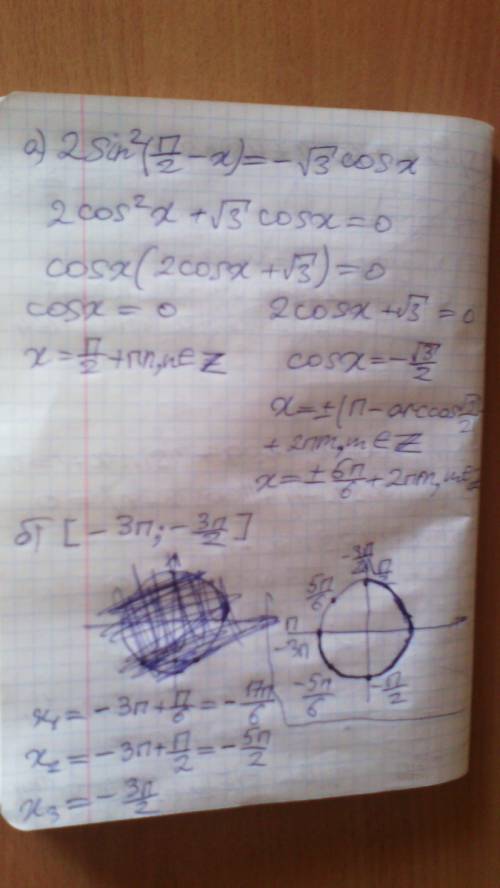 а) 2sin²(π/2 - x) = -√3 cosx
2cos²x + √3 cosx = 0
cosx(2cosx + √3) = 0
cosx = 0    2cosx + √3 = 0
x = π/2 + πn, n∈Z    cosx = -√3/2
x = ±(π - arccos √3/2
+ 2πm, m∈Z
x = ±6π/6 + 2πm, m∈Z
б) [-3π; -3π/2]
-3π/2
π/2
5π/6
π
-3π
-5π/6
-π/2
x₁ = -3π + π/6 = -17π/6
x₂ = -3π + π/2 = -5π/2
x₃ = -3π/2